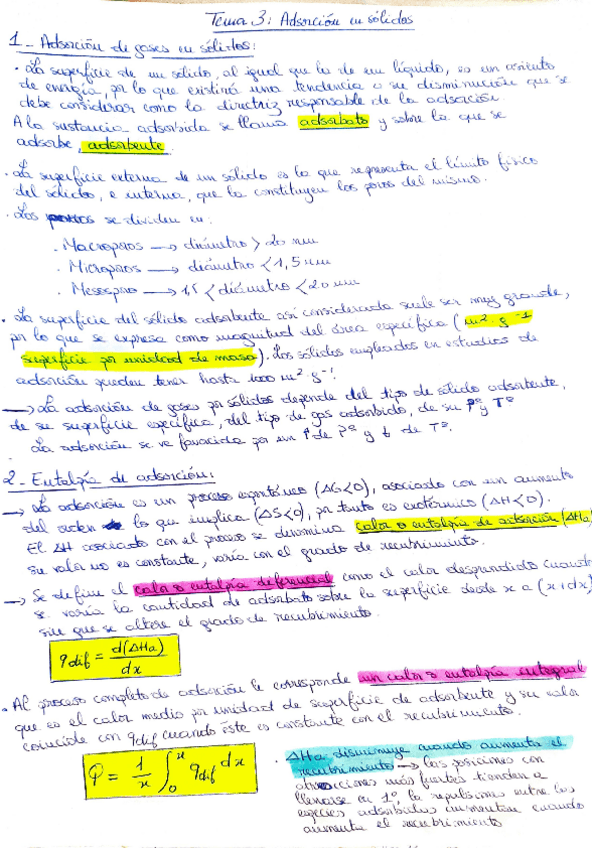 Tema 3: Adsorción en sólidos
1_ Adsorción de gases en sólidos:
· La superficie de un sólido, al igual que la de un líquido, es un asiento
de energía, por lo que existirá una tendencia a su disminución que se
debe considerar como la directriz responsable de la adsorción.
A la sustancia adsorbida se llama adsorbato y sobre la que se
adsorbe, adsorbente.
· La superficie externa de un sólido es la que representa el límite físico
del sólido, e interna, que la constituyen los poros del mismo.
· Los poros se dividen en:
· Macroporos → diámetro > 20 nm
· Microporos → diámetro < 1,5 nm
· Mesoporo → 1,5 < diámetro < 20 nm
· La superficie del sólido adsorbente así considerada suele ser muy grande,
por lo que se expresa como magnitud del área específica (m². g⁻¹
superficie por unidad de masa). Los sólidos empleados en estudios de
adsorción pueden tener hasta 1000 m² g⁻¹.
→ La adsorción de gases por sólidos depende del tipo de sólido adsorbente,
de su superficie específica, del tipo de gas adsorbido, de su Pº y Tº
La adsorción se ve favorecida por un ↑ de Pº y ↓ de Tº.
2_ Entalpía de adsorción:
→ La adsorción es un proceso espontáneo (ΔG<0), asociado con un aumento
del orden lo que implica (ΔS<0), por tanto es exotérmico (ΔH<0).
El ΔH asociado con el proceso se denomina calor o entalpía de adsorción (ΔHa)
su valor no es constante, varía con el grado de recubrimiento.
→ Se define el calor o entalpía diferencial como el calor desprendido cuando
se varía la cantidad de adsorbato sobre la superficie desde x a (x+dx)
sin que se altere el grado de recubrimiento.
q dif = d(ΔHa) / dx
· Al proceso completo de adsorción le corresponde un calor o entalpía integral
que es el calor medio por unidad de superficie de adsorbente y su valor
coincide con qdif cuando éste es constante con el recubrimiento.
Q = 1/x ∫₀ˣ qdif dx
· ΔHa disminuye cuando aumenta el
recubrimiento → las posiciones con
atracciones más fuertes tienden a
llenarse en 1º, la repulsiones entre las
especies adsorbidas aumentan cuando
aumenta el recubrimiento